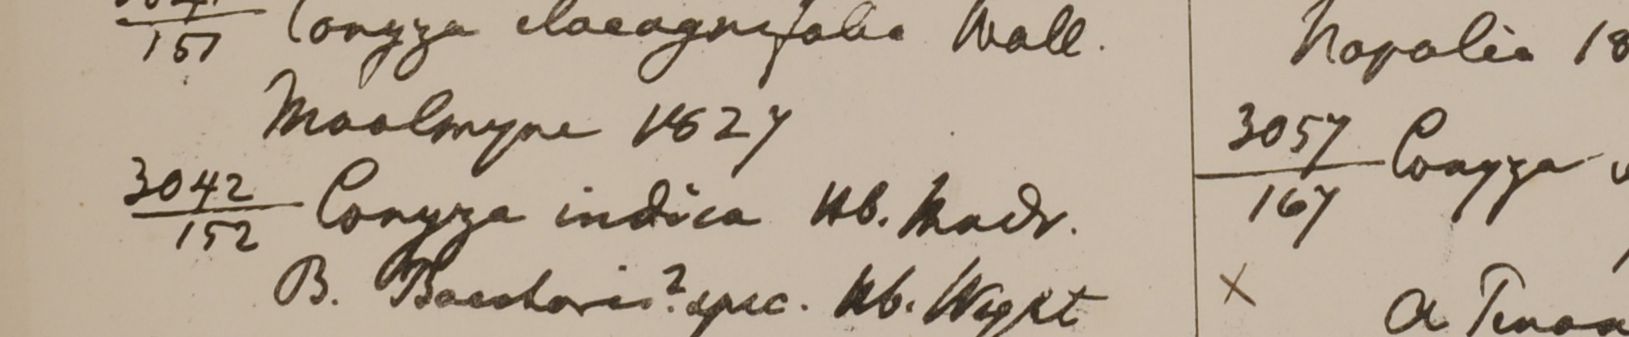 151 Conyza elaeagnifolia Wall.
Moalmyne 1827
3042
152 Conyza indica Hb. Madr.
B. Baccharis? spec. Hb. Wight
Napalia 18
3057
167 Conyza
X a Tenoa